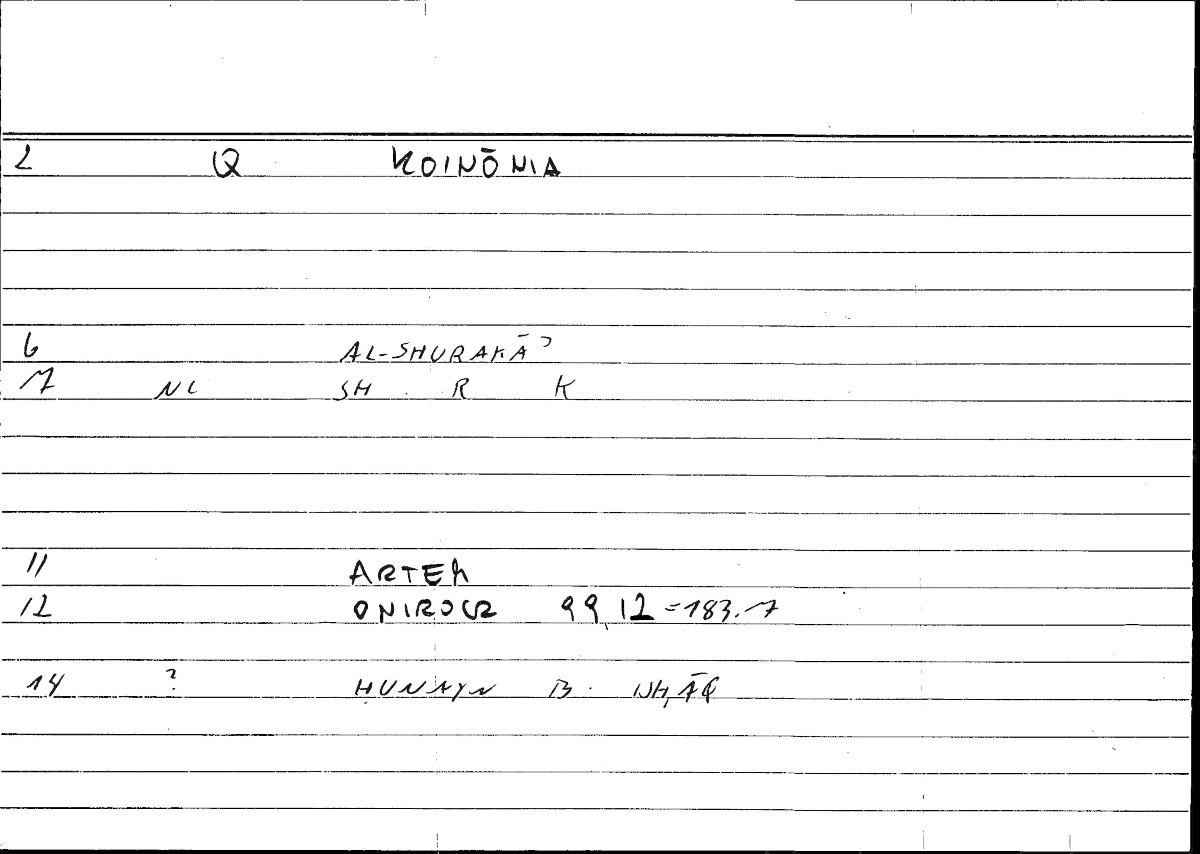 2 Q KOINŌNIA
6 AL-SHURAKĀʾ
7 NL SH R K
11 ARTEM
12 ONIROCR 99,12 = 183.7
14 ? ḤUNAYN B. ISḤĀQ